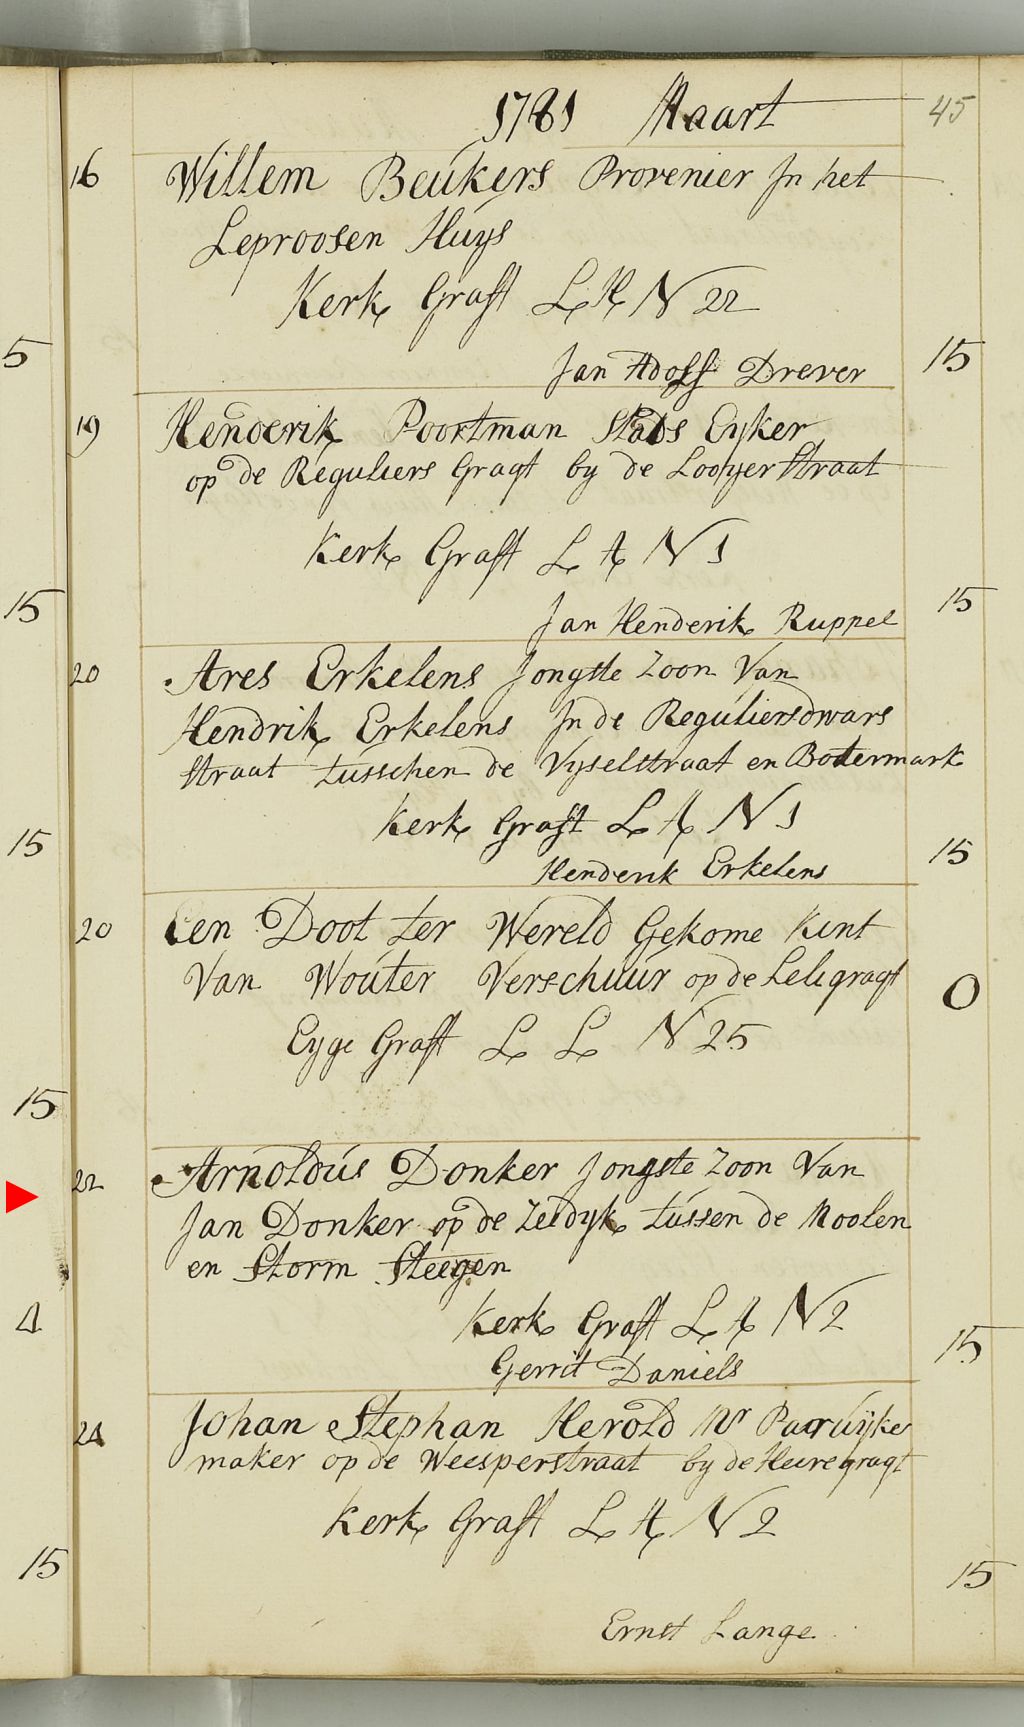 1781 Maart 45
16 Willem Beukers Provenier In het
Leproosen Huys
Kerk Graft L H N 22
5 Jan Adolf Drever 15
19 Henderik Poortman Stads Eyker
op de Reguliers Gragt by de Looyer Straat
Kerk Graft L A N 1
15 Jan Henderik Ruppel 15
20 Ares Erkelens Jongste Zoon Van
Hendrik Erkelens In de Reguliersdwars
Straat tusschen de Vyselstraat en Botermark
Kerk Graft L A N 1
15 Henderik Erkelens 15
20 Een Doot ter Wereld Gekome Kint
Van Wouter Verschuur op de Leligragt
Eyge Graft L L N 25 0
15
22 Arnoldus Donker Jongste Zoon Van
Jan Donker op de Zeedyk tussen de Moolen
en Storm Steegen
Kerk Graft L A N 2
Gerrit Daniels 15
24 Johan Stephan Herold Mr Paruyke
maker op de Weesperstraat by de Heeregragt
Kerk Graft L A N 2
15 15
Ernst Lange